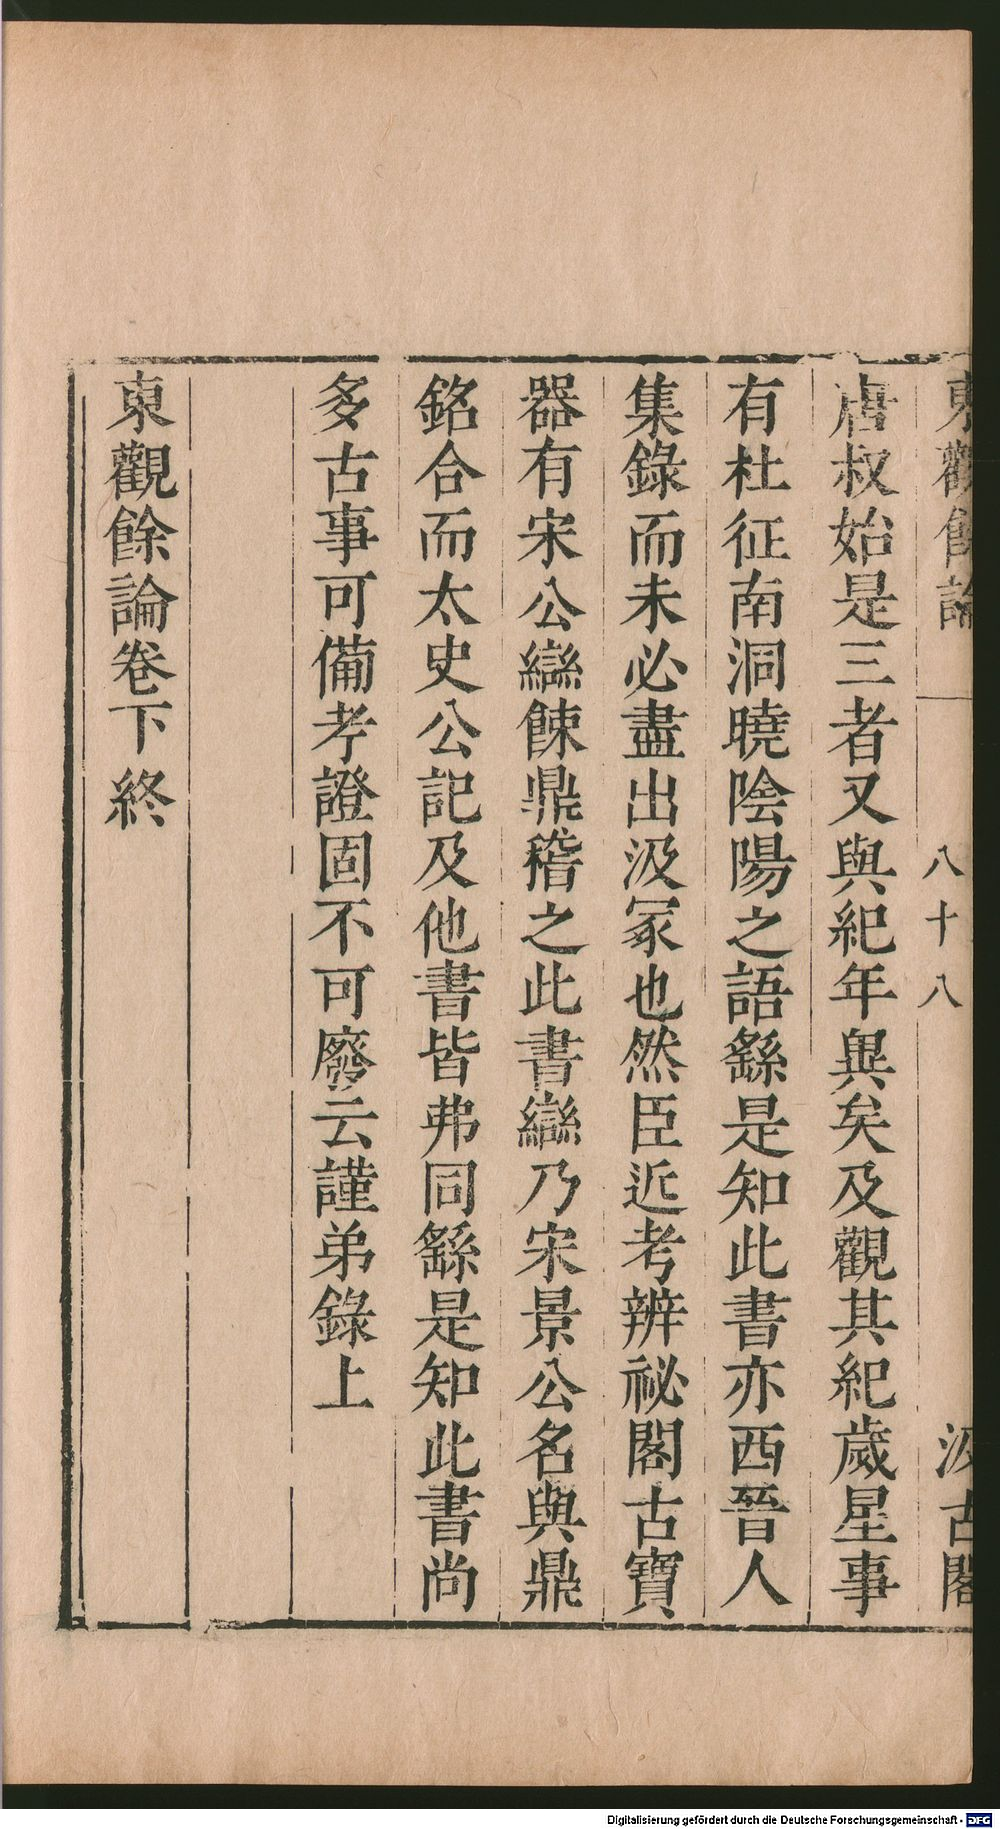 東觀餘論
八十八
汲古閣
唐叔始是三者又與紀年異矣及觀其紀歲星事
有杜征南洞曉陰陽之語繇是知此書亦西晉人
集錄而未必盡出汲冢也然臣近考辨祕閣古寶
器有宋公䜌餗鼎稽之此書䜌乃宋景公名與鼎
銘合而太史公記及他書皆弗同繇是知此書尚
多古事可備考證固不可廢云謹弟錄上
東觀餘論卷下 終
Digitalisierung gefördert durch die Deutsche Forschungsgemeinschaft - DFG